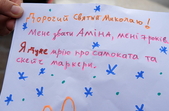 Дорогий Святий Миколаю!
Мене звати Аміна, мені 7 років.
Я дуже мрію про самоката та
скетч маркери.